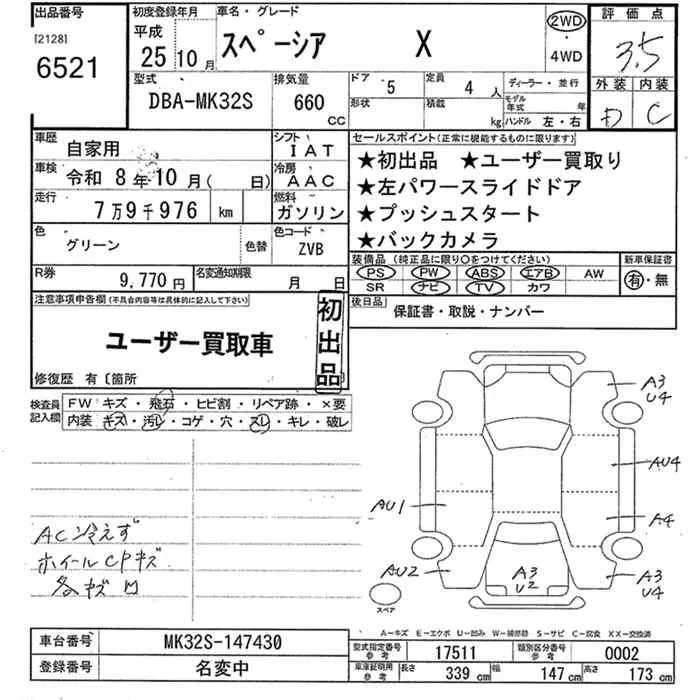 出品番号
[2128]
6521
初度登録年月
平成
25 10月
車名・グレード
スペーシア X
2WD
・
4WD
評価点
3.5
外装 内装
D C
型式
DBA-MK32S
排気量
660
CC
ドア 5
定員 4 人
形状
積載 kg
ディーラー・並行
モデル年式 年
ハンドル 左・右
車歴
自家用
シフト
IAT
車検
令和 8年 10月( 日)
冷房
AAC
走行
7万9千976 km
燃料
ガソリン
色
グリーン
色替
色コード
ZVB
R券
9,770円
名変通知期限
月 日
セールスポイント(正常に機能するものに限ります)
★初出品 ★ユーザー買取り
★左パワースライドドア
★プッシュスタート
★バックカメラ
装備品(純正品に限り○をつけてください)
新車保証書
PS PW ABS エアB AW
SR ナビ TV カワ
有・無
後日品
保証書・取説・ナンバー
注意事項申告欄(不具合内容等は具体的に記入して下さい)
ユーザー買取車
初出品
修復歴 有〔箇所 〕
検査員記入欄
FW キズ・飛石・ヒビ割・リペア跡・×要
内装 キズ・汚レ・コゲ・穴・スレ・キレ・破レ
AC冷えず
ホイールCPキズ
各キズ凹
A3
U4
AU4
AU1
A4
AU2
A3
U2
A3
U4
スペア
A−キズ E−エクボ U−凹み W−補修跡 S−サビ C−腐食 XX−交換済
車台番号
MK32S-147430
登録番号
名変中
型式指定番号
参考
17511
類別区分番号
参考
0002
車庫証明用
参考
長さ 339 cm
幅 147 cm
高さ 173 cm